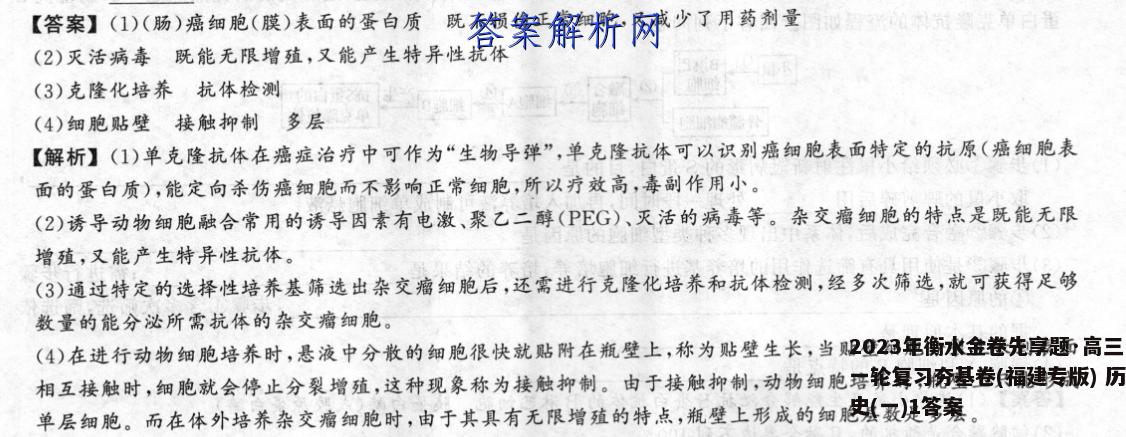 【答案】(1)(肠)癌细胞(膜)表面的蛋白质 既 正常细胞, 减少了用药剂量
答案解析网
(2)灭活病毒 既能无限增殖,又能产生特异性抗体
(3)克隆化培养 抗体检测
(4)细胞贴壁 接触抑制 多层
【解析】(1)单克隆抗体在癌症治疗中可作为“生物导弹”,单克隆抗体可以识别癌细胞表面特定的抗原(癌细胞表
面的蛋白质),能定向杀伤癌细胞而不影响正常细胞,所以疗效高,毒副作用小。
(2)诱导动物细胞融合常用的诱导因素有电激、聚乙二醇(PEG)、灭活的病毒等。杂交瘤细胞的特点是既能无限
增殖,又能产生特异性抗体。
(3)通过特定的选择性培养基筛选出杂交瘤细胞后,还需进行克隆化培养和抗体检测,经多次筛选,就可获得足够
数量的能分泌所需抗体的杂交瘤细胞。
(4)在进行动物细胞培养时,悬液中分散的细胞很快就贴附在瓶壁上,称为贴壁生长,当贴
相互接触时,细胞就会停止分裂增殖,这种现象称为接触抑制。由于接触抑制,动物细胞培
单层细胞。而在体外培养杂交瘤细胞时,由于其具有无限增殖的特点,瓶壁上形成的细胞
2023年衡水金卷先享题·高三
一轮复习夯基卷(福建专版) 历
史(一)1答案